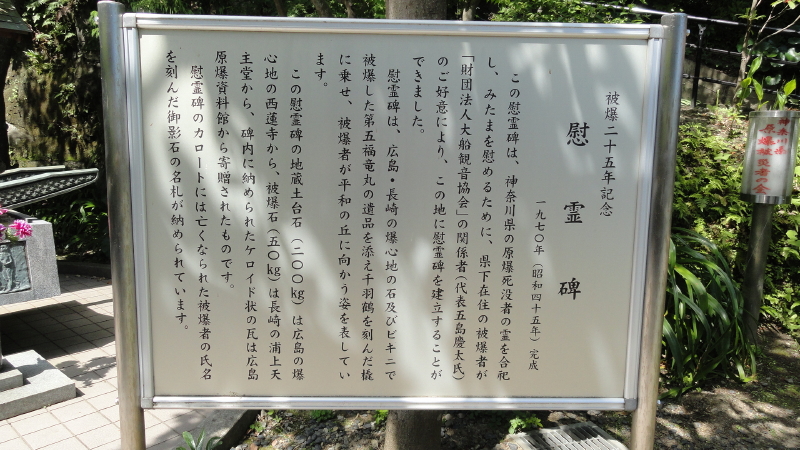 被爆二十五年記念
慰霊碑
一九七〇年（昭和四十五年）完成
この慰霊碑は、神奈川県の原爆死没者の霊を合祀
し、みたまを慰めるために、県下在住の被爆者が
「財団法人大船観音協会」の関係者（代表五島慶太氏）
のご好意により、この地に慰霊碑を建立することが
できました。
慰霊碑は、広島・長崎の爆心地の石及びビキニで
被爆した第五福竜丸の遺品を添え千羽鶴を刻んだ橇
に乗せ、被爆者が平和の丘に向かう姿を表してい
ます。
この慰霊碑の地蔵土台石（二〇〇kg）は広島の爆
心地の西蓮寺から、被爆石（五〇kg）は長崎の浦上天
主堂から、碑内に納められたケロイド状の瓦は広島
原爆資料館から寄贈されたものです。
慰霊碑のカロートには亡くなられた被爆者の氏名
を刻んだ御影石の名札が納められています。
神奈川県
原爆被災者の会